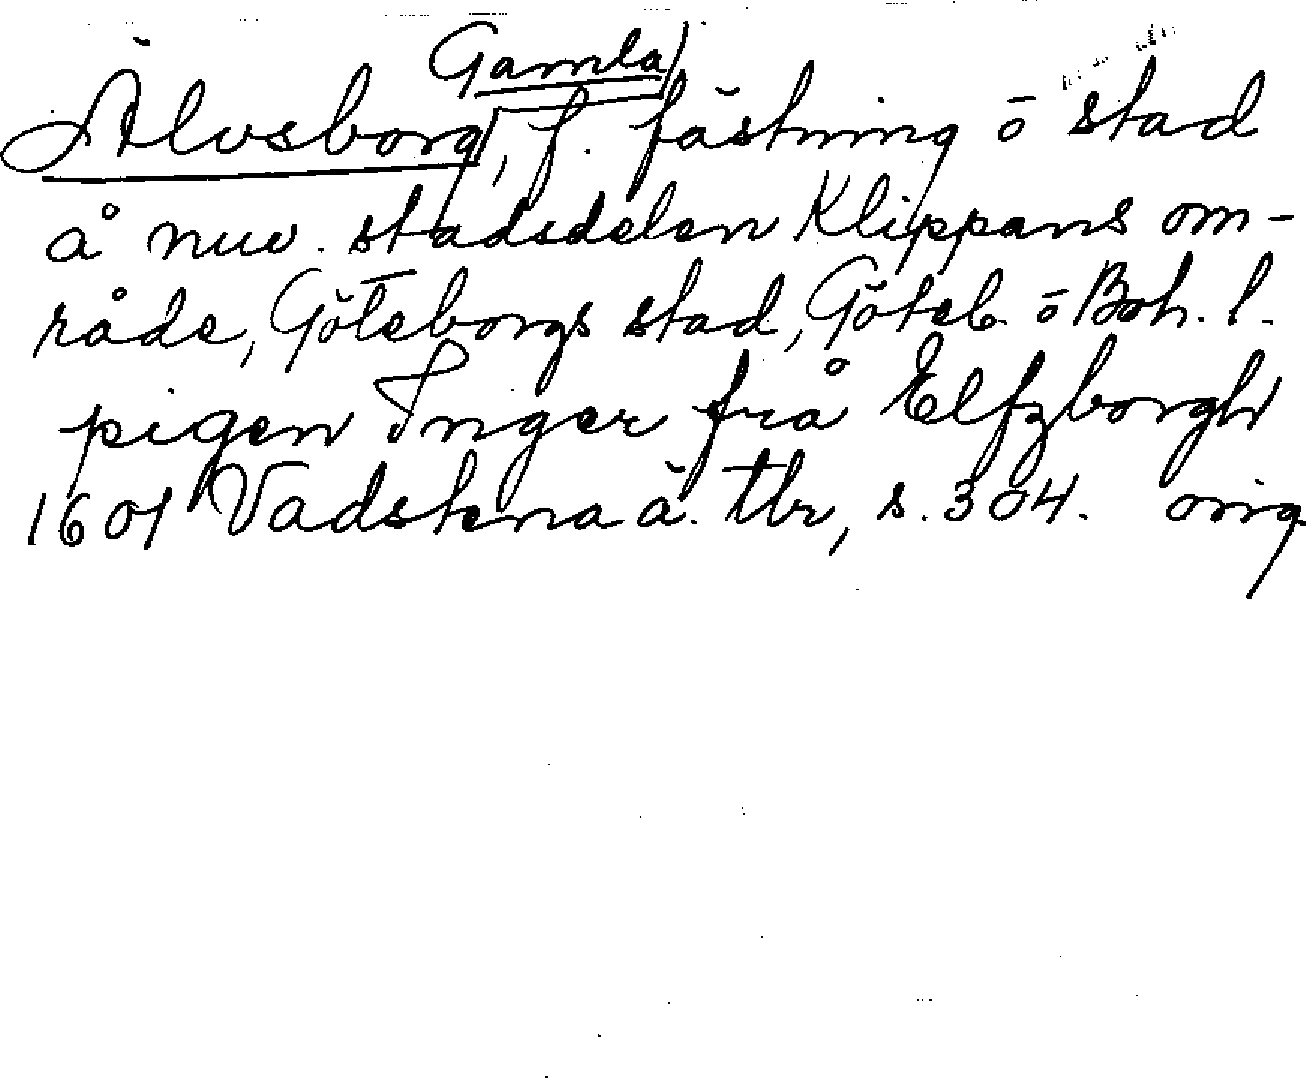 Gamla
Älvsborg, f. fästning ō stad
å nuv. stadsdelen Klippans om-
råde, Göteborgs stad, Göteb. ō Boh. l.
pigen Inger frå Elfzborgh
1601 Vadstena ä. tbr, s. 304. orig